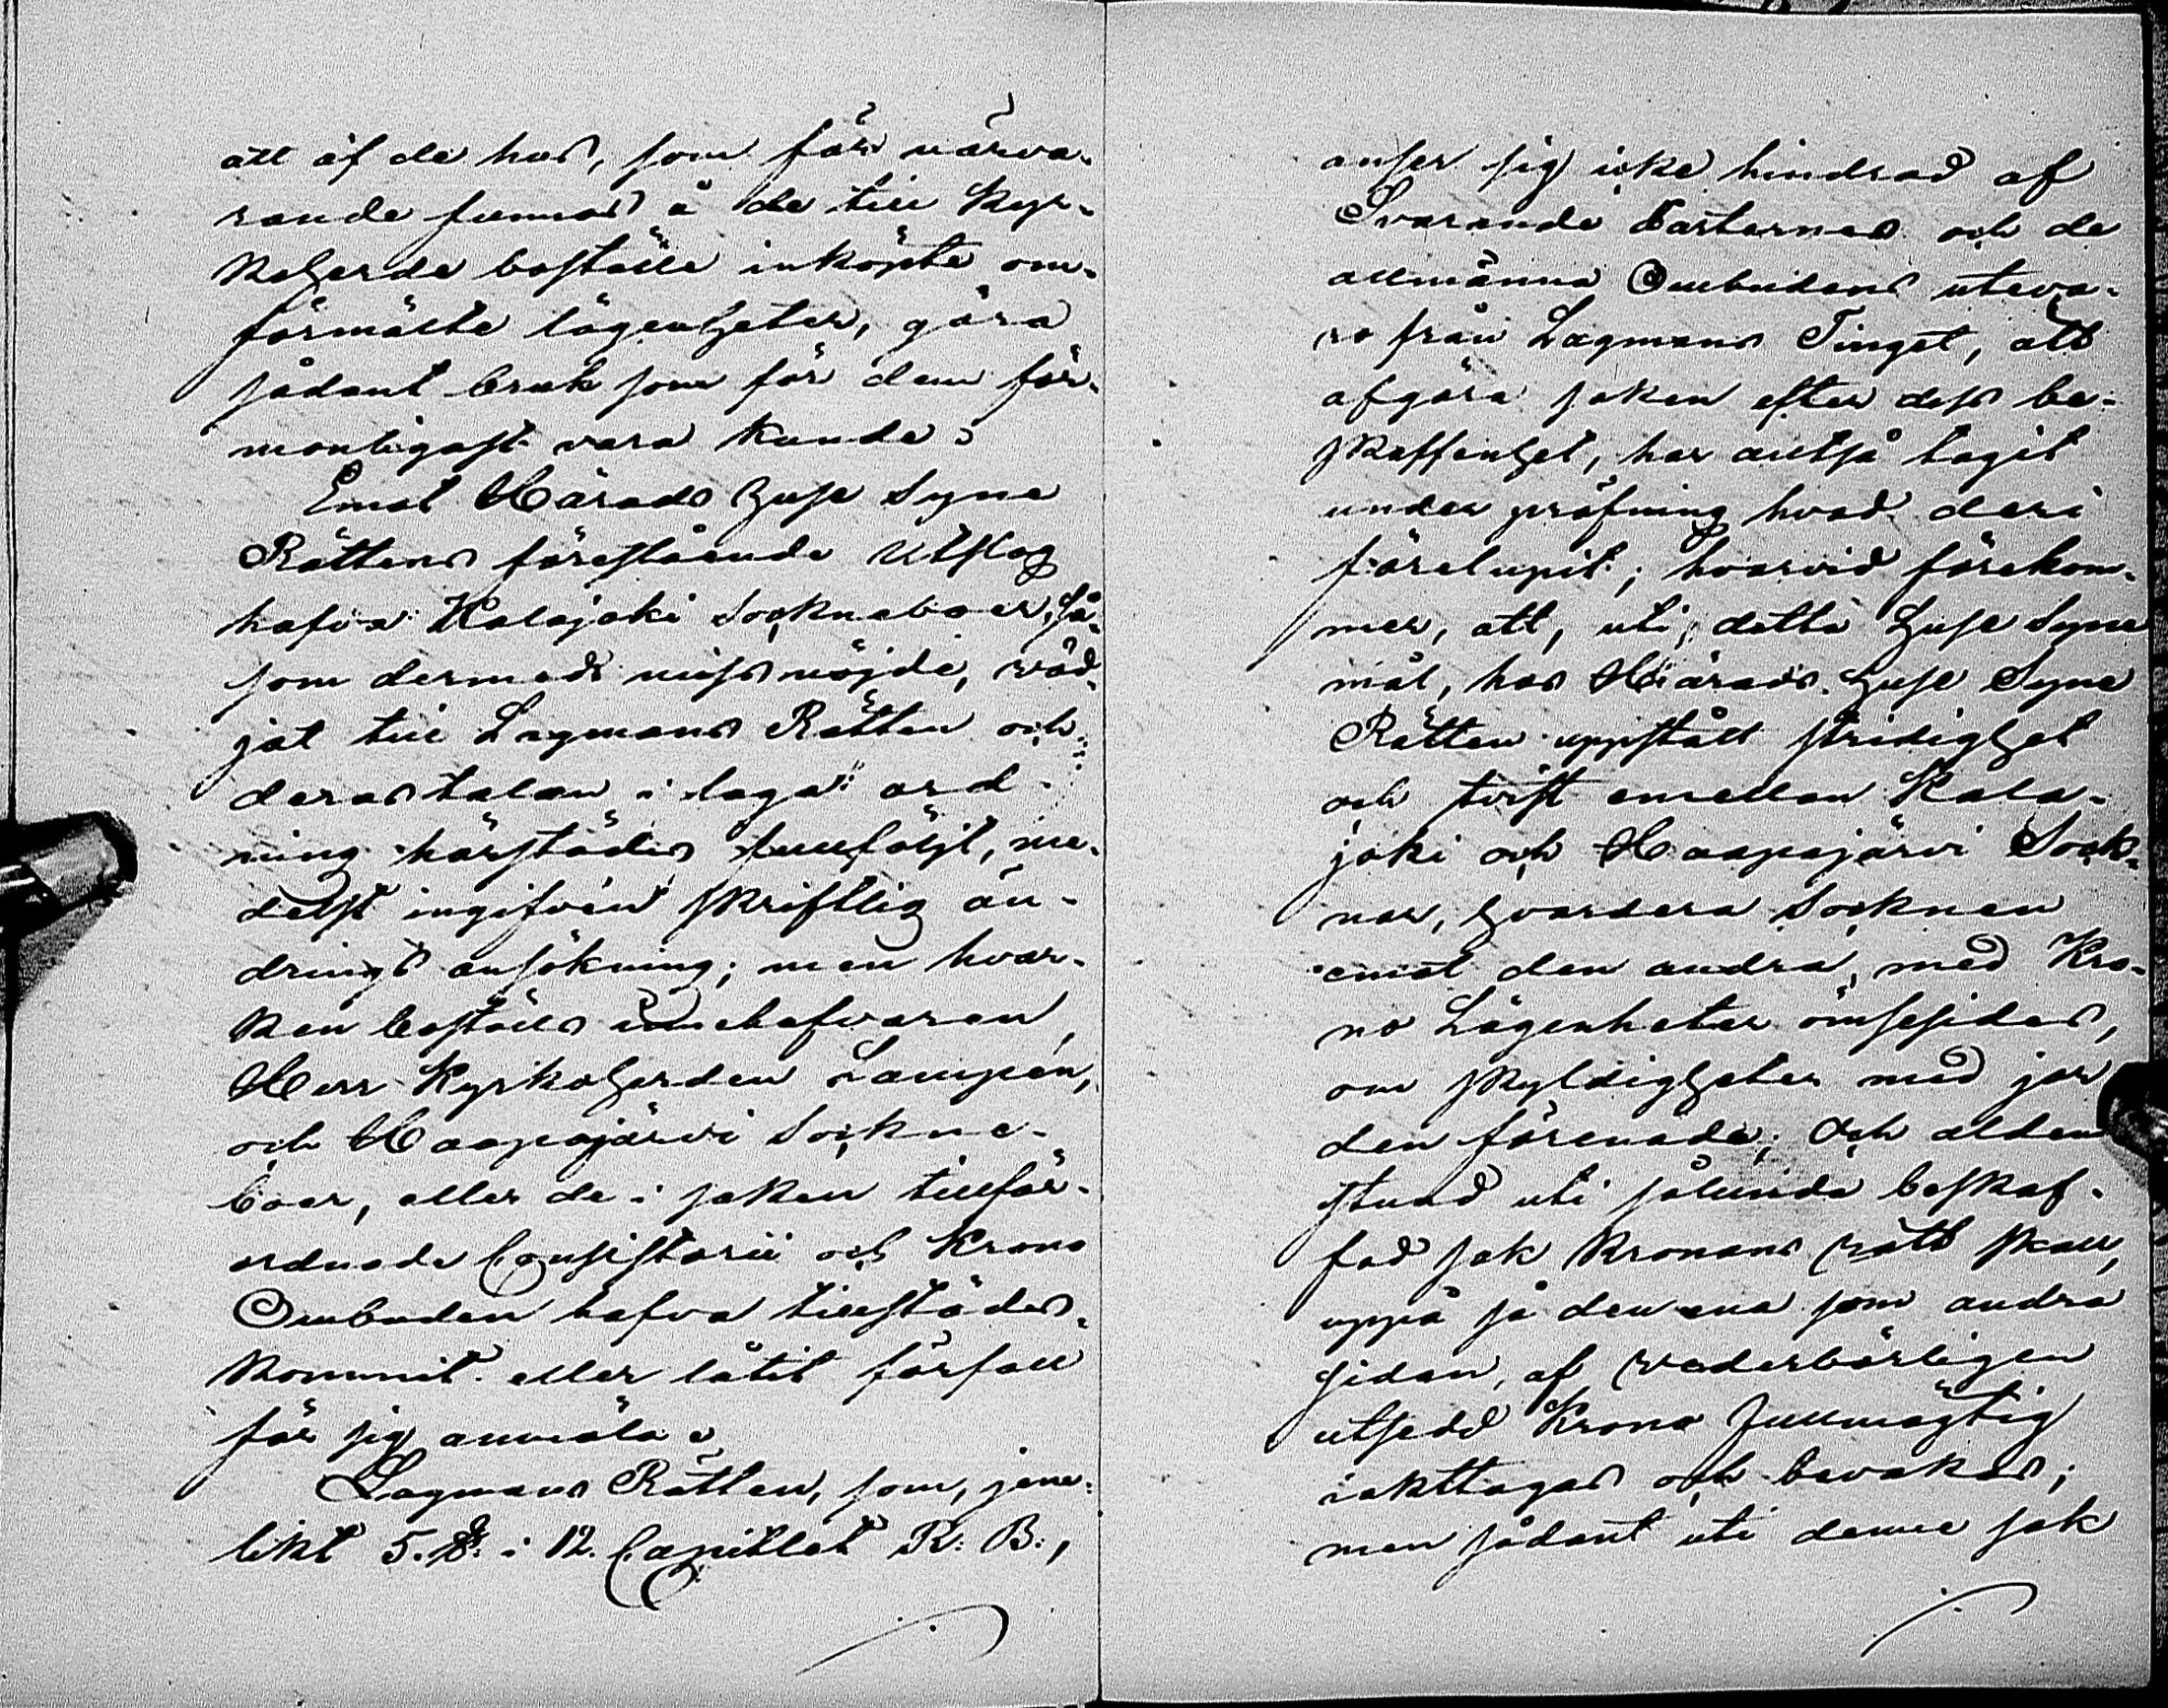 att af de hus, som för närva-
rande finnas å de till Kyr-
koherde boställe inköpte om-
förmälte lägenheter, göra
sådant bruk som för dem för-
monligast vara kunde.
Emot Härads Huse Syne
Rättens förestående Utslag
hafva Kalajoki Socknaboer, så-
som dermed missnöjde, väd-
jat till Lagmans Rätten och
deras talan i laga ord-
ning härstädes fullföljt, me-
delst ingifven skriftlig än-
drings ansökning; men hvar-
ken boställs innehafvaren,
Herr Kyrkoherden Lampén,
och Haapajärvi Sockne-
boer, eller de i saken tillför-
ordnade Consistorii och Krono
Ombuden hafva tillstädes-
kommit eller låtit förfall
för sig anmäla.
Lagmans Rätten, som, jem-
likt 5. §: i 12. Capitlet R: B:,
anser sig icke hindrad af
Svarande Parternes och de
allmänna Ombudens uteva-
ro från Lagmans Tinget, att
afgöra saken efter dess be-
skaffenhet, har altså tagit
under pröfning hvad deri
förelupit; hvarvid förekom-
mer, att, uti detta Huse Syne
mål, hos Härads Huse Syne
Rätten uppstått stridighet
och tvist emellan Kala-
joki och Haapajärvi Sock-
nar, hvardera Socknen
emot den andra, med Kro-
no Lägenheter ömsesides,
om skyldigheter med jor
den förenade; Och alden
stund uti sålunda beskaf-
fad sak Kronans rätt skall,
uppå så den ena som andra
sidan, af vederbörligen
utsedd Krono Fullmägtig
iakttagas och bevakas;
men sådant uti denne sak